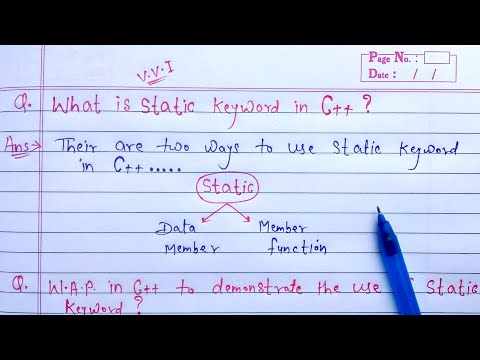 V.V.I
Page No. :
Date : / /
Q. What is Static Keyword in C++ ?
Ans:→ Their are two ways to use Static Keyword
in C++.....
Static
Data Member
Member function
Q. W.A.P. in C++ to demonstrate the use of Static
Keyword ?